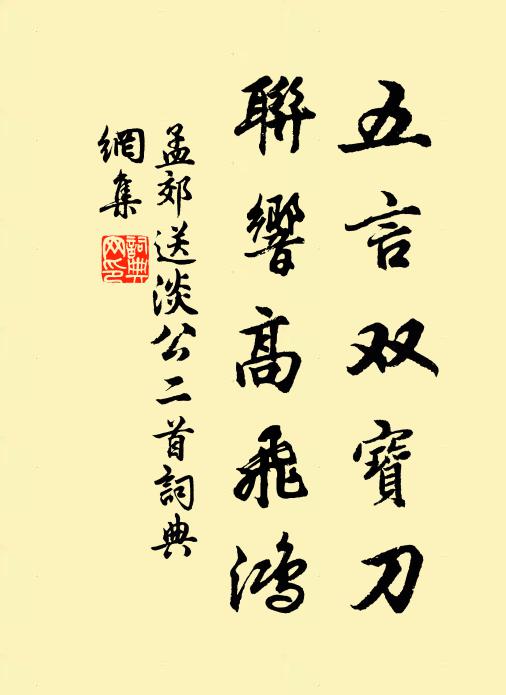 五言双寶刀
聯響高飛鴻
孟郊送淡公二首詞典
網集
詞典
网印